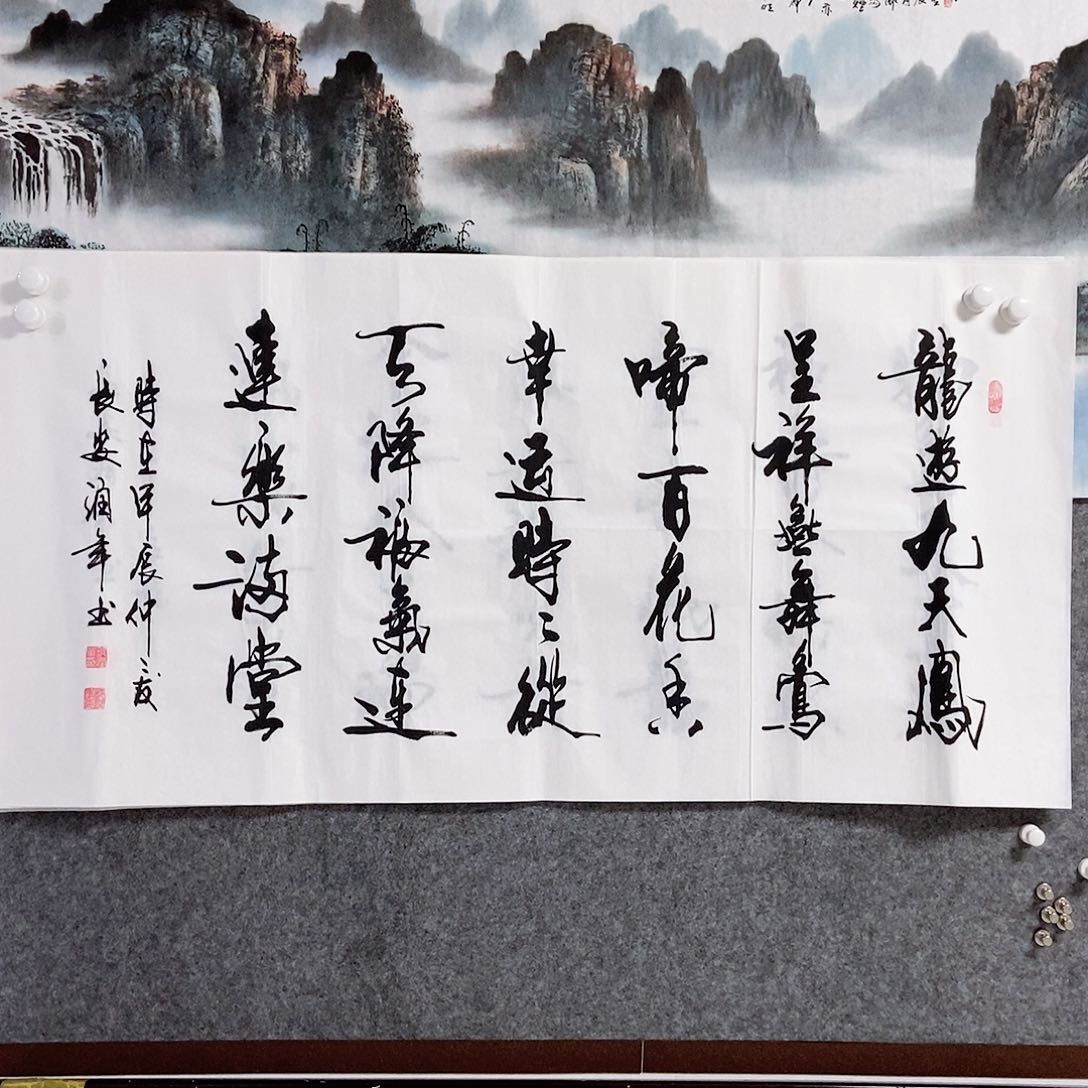 龍遊九天鳳
呈祥燕舞鶯
啼百花香
幸運時〻從
天降福氣連
連樂滿堂
時在甲辰仲
長安潤年书